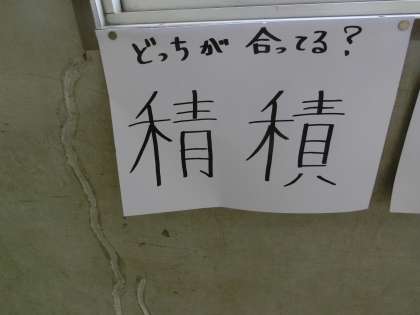 どっちが 合ってる?
積